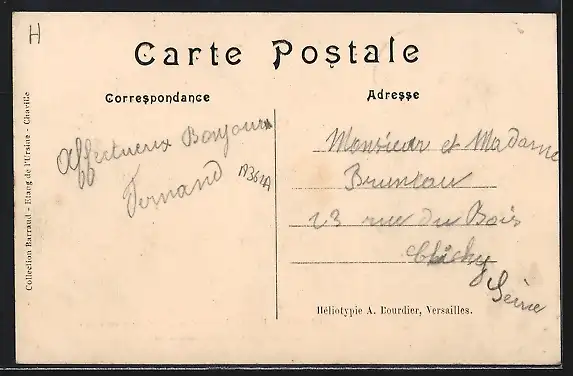 H
Carte Postale
Correspondance
Adresse
Affectueux Bonjours
Fernand
Monsieur et Madame
Bruneau
23 rue du Bois
Clichy
Seine
Héliotypie A. Bourdier, Versailles.
Collection Barraud - Etang de l'Ursine - Chaville